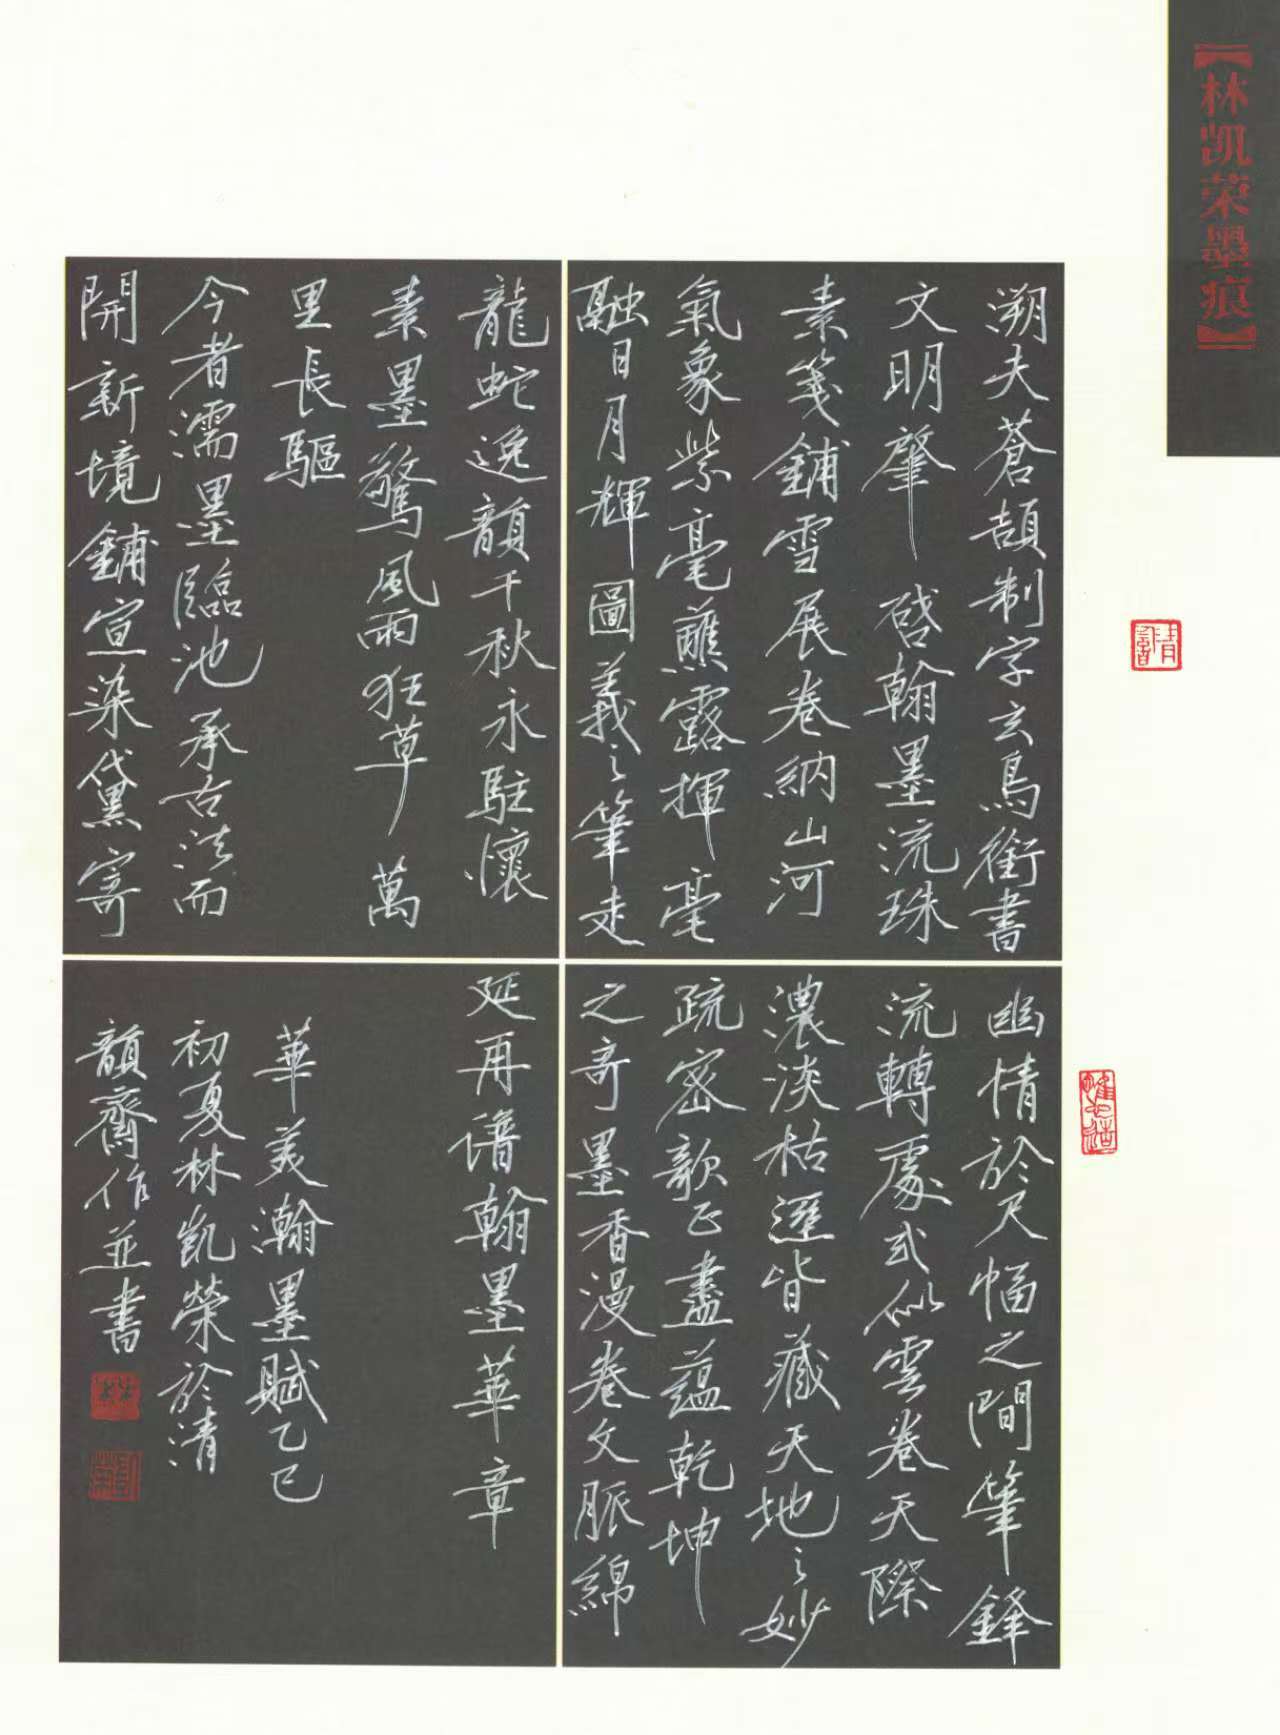 【林凯荣墨痕】
溯夫蒼頡制字玄鳥銜書
文明肇啓翰墨流珠
素箋鋪雪展卷納山河
氣象紫毫蘸露揮毫
融日月輝圖羲之筆走
龍蛇逸韻千秋永駐懷
素墨驚風雨狂草萬
里長驅
今者濡墨臨池承古法而
開新境鋪宣染黛寄
幽情於尺幅之間筆鋒
流轉處或似雲卷天際
濃淡枯溼皆藏天地之妙
疏密欹正盡蘊乾坤
之奇墨香漫卷文脈綿
延再譜翰墨華章
華美瀚墨賦乙巳
初夏林凱榮於清
韻齋作並書
清韻